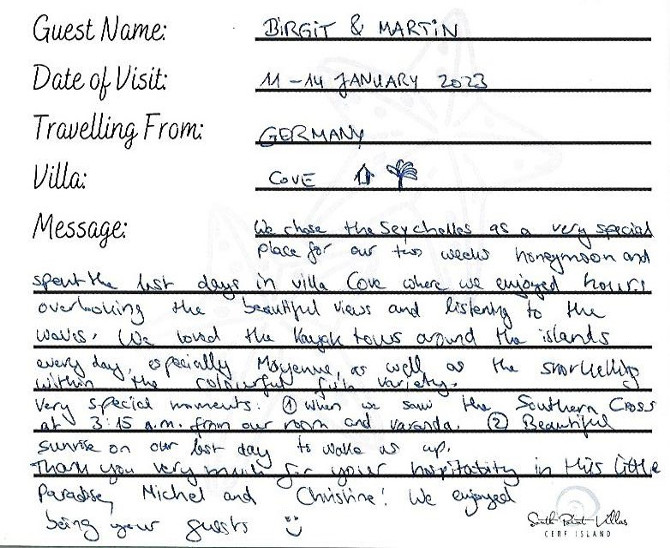 Guest Name: BIRGIT & MARTIN
Date of Visit: 11-14 JANUARY 2023
Travelling From: GERMANY
Villa: COVE
Message: We chose the Seychelles as a very special
place for our two weeks honeymoon and
spent the last days in villa Cove where we enjoyed hours
overlooking the beautiful views and listening to the
waves. We loved the Kayak tours around the islands
every day, especially Moyenne, as well as the snorkelling
within the colourful fish variety.
Very special moments: ① When we saw the Southern Cross
at 3:15 a.m. from our room and varanda. ② Beautiful
sunrise on our last day to wake us up.
Thank you very much for your hospitality in this little
Paradise, Michel and Christine! We enjoyed
being your guests
South Point Villas
CERF ISLAND